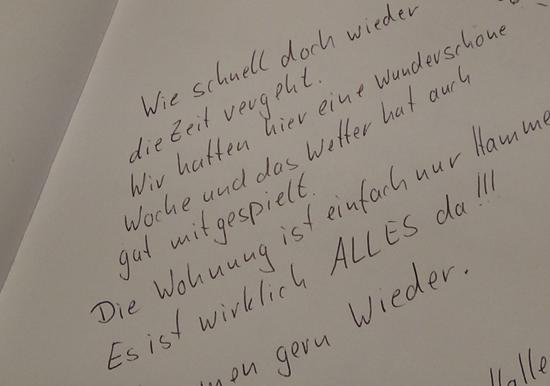 Wie schnell doch wieder
die Zeit vergeht.
Wir hatten hier eine wunderschöne
Woche und das Wetter hat auch
gut mitgespielt.
Die Wohnung ist einfach nur Hamme
Es ist wirklich ALLES da!!!
men gern wieder.
Halle